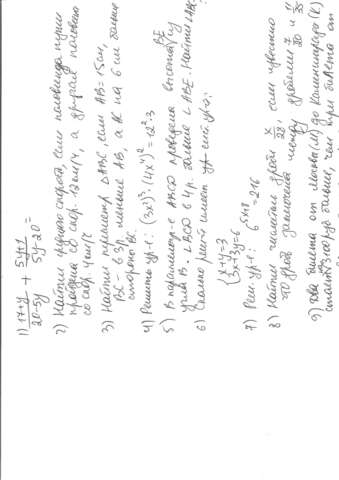 1) 17+y/20-5y + 5y+1/5y-20 =
2) Найти среднюю скорость, если половина пути
пройдена со скор. 12 км/ч, а другая половина
со скор. 4 км/ч
3) Найти периметр ΔABC, если AB=15см,
BC - в 3р. меньше AB, а AC на 6 см больше
стороны BC.
4) Решить ур-е: (3x)³·(4x⁴)² = 12²·3
5) В параллелогр-е ABCD проведена высота BE из
угла B. ∠BCD в 4р. больше ∠ABE. Найти ∠ABC.
6) Сколько реш-й имеет сист. ур-й:
{ x+y=3
3x+3y=6
7) Реш. ур-е: 6^(5x+8) = 216
8) Найти числитель дроби x/28, если известно
что дробь заключена между дробями 7/20 и 11/35
9) Два билета от (М) до (К)
3100 руб. больше, чем три билета от